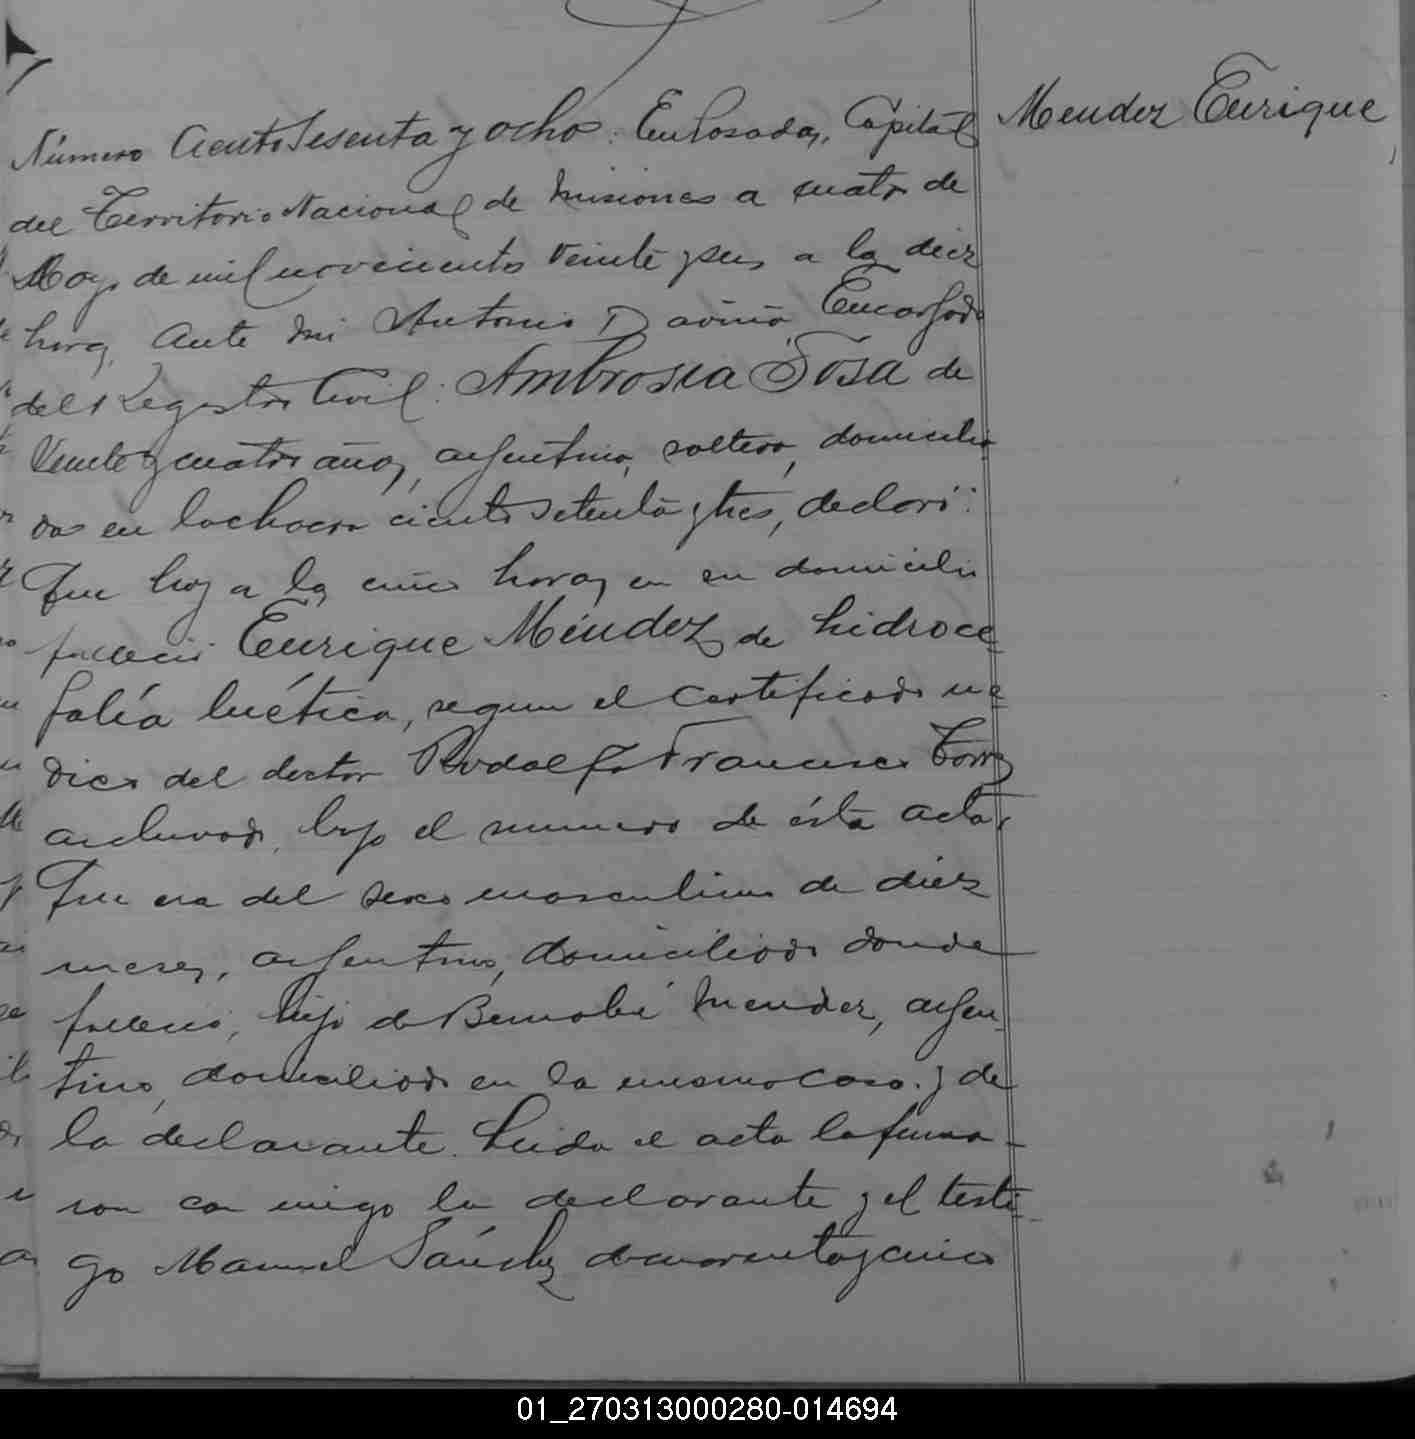 Mendez Enrique
Número Ciento Sesenta y ocho. En Posadas, Capital
del Territorio Nacional de Misiones a cuatro de
Mayo de mil novecientos veinte y seis, a las diez
horas, Ante mi Antonio D aviña Encargado
del Registro Civil: Ambrosia Sosa de
Veinte y cuatro años, argentina, soltera, domicilia
da en la chacra ciento setenta y tres, declaró:
Que hoy a las cinco horas en su domicilio
falleció Enrique Méndez de hidroce
falía luética, segun el certificado me
dico del doctor Rodolfo Francisco Torres
archivado bajo el numero de ésta acta,
Que era del sexo masculino de diez
meses, argentino, domiciliado donde
falleció, hijo de Bernabé Mendez, argen
tino, domiciliado en la misma casa y de
la declarante. Leida el acta la firma-
ron con migo la declarante y el testi-
go Manuel Sánchez de cuarenta y cinco
01_270313000280-014694